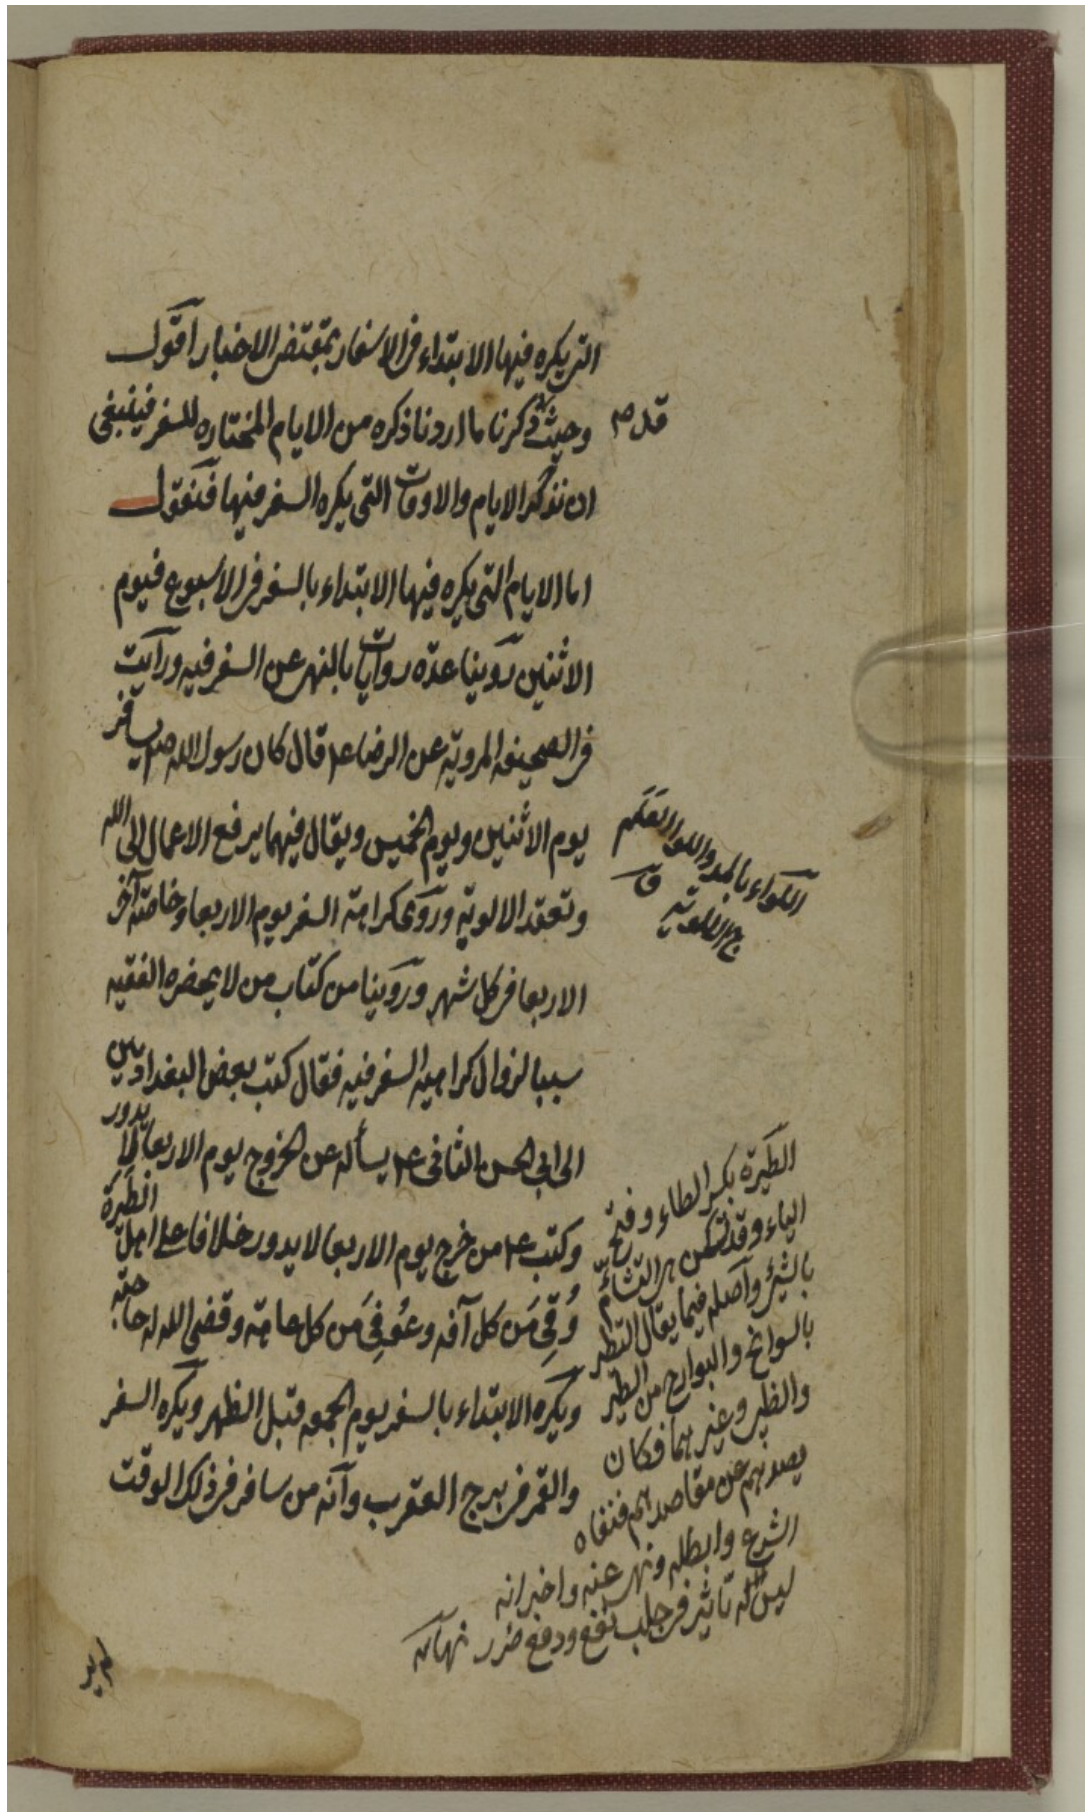 التى يكره فيها الابتداء فى الاسفار بمقتضى الاخبار اقول
وحيث ذكرنا ما اردنا ذكره من الايام المختاره للسفر فينبغى
قد صح
ان نذكر الايام والاوقات التى يكره السفر فيها فنقول
اما الايام التى يكره فيها الابتداء بالسفر فى الاسبوع فيوم
الاثنين روينا عدة روايات بالنهى عن السفر فيه ورايت
فى الصحيفه المرويّه عن الرضا ع قال كان رسول الله ص يسافر
يوم الاثنين ويوم الخميس ويقال فيهما يرفع الاعمال الى الله
وتعقد الالوية وروى كراهة السفر يوم الاربعا وخاصّة آخر
الاربعا فى كل شهر وروينا من كتاب من لا يحضره الفقيه
سببا لزوال كراهيه السفر فيه فقال كتب بعض البغداديين
الى ابى الحسن الثانى ع يسأله عن الخروج يوم الاربعا لا يدور
وكتب ع من خرج يوم الاربعا لا يدور خلافا على اهل الطيرة
وُقِىَ من كل آفه وعُوفِىَ من كل عاهة وقضى الله له حاجته
ويكره الابتداء بالسفر يوم الجمعه قبل الظهر ويكره السفر
والقمر فى برج العقرب وانّه من سافر فى ذلك الوقت
اللواء بالمد واللواى العَلَم
ج الالوية ق
الطيرة بكسر الطاء وفتح
الياء وقد تسكن هى التشاؤم
بالشئ واصله فيما يقال التطير
بالسوانح والبوارح من الطير
والظبى وغيرهما فكان
يصدهم عن مقاصدهم فنفاه
الشرع وابطله ونهى عنه واخبر انه
ليس له تاثير فى جلب نفع ودفع ضرر نهاية
لم ير